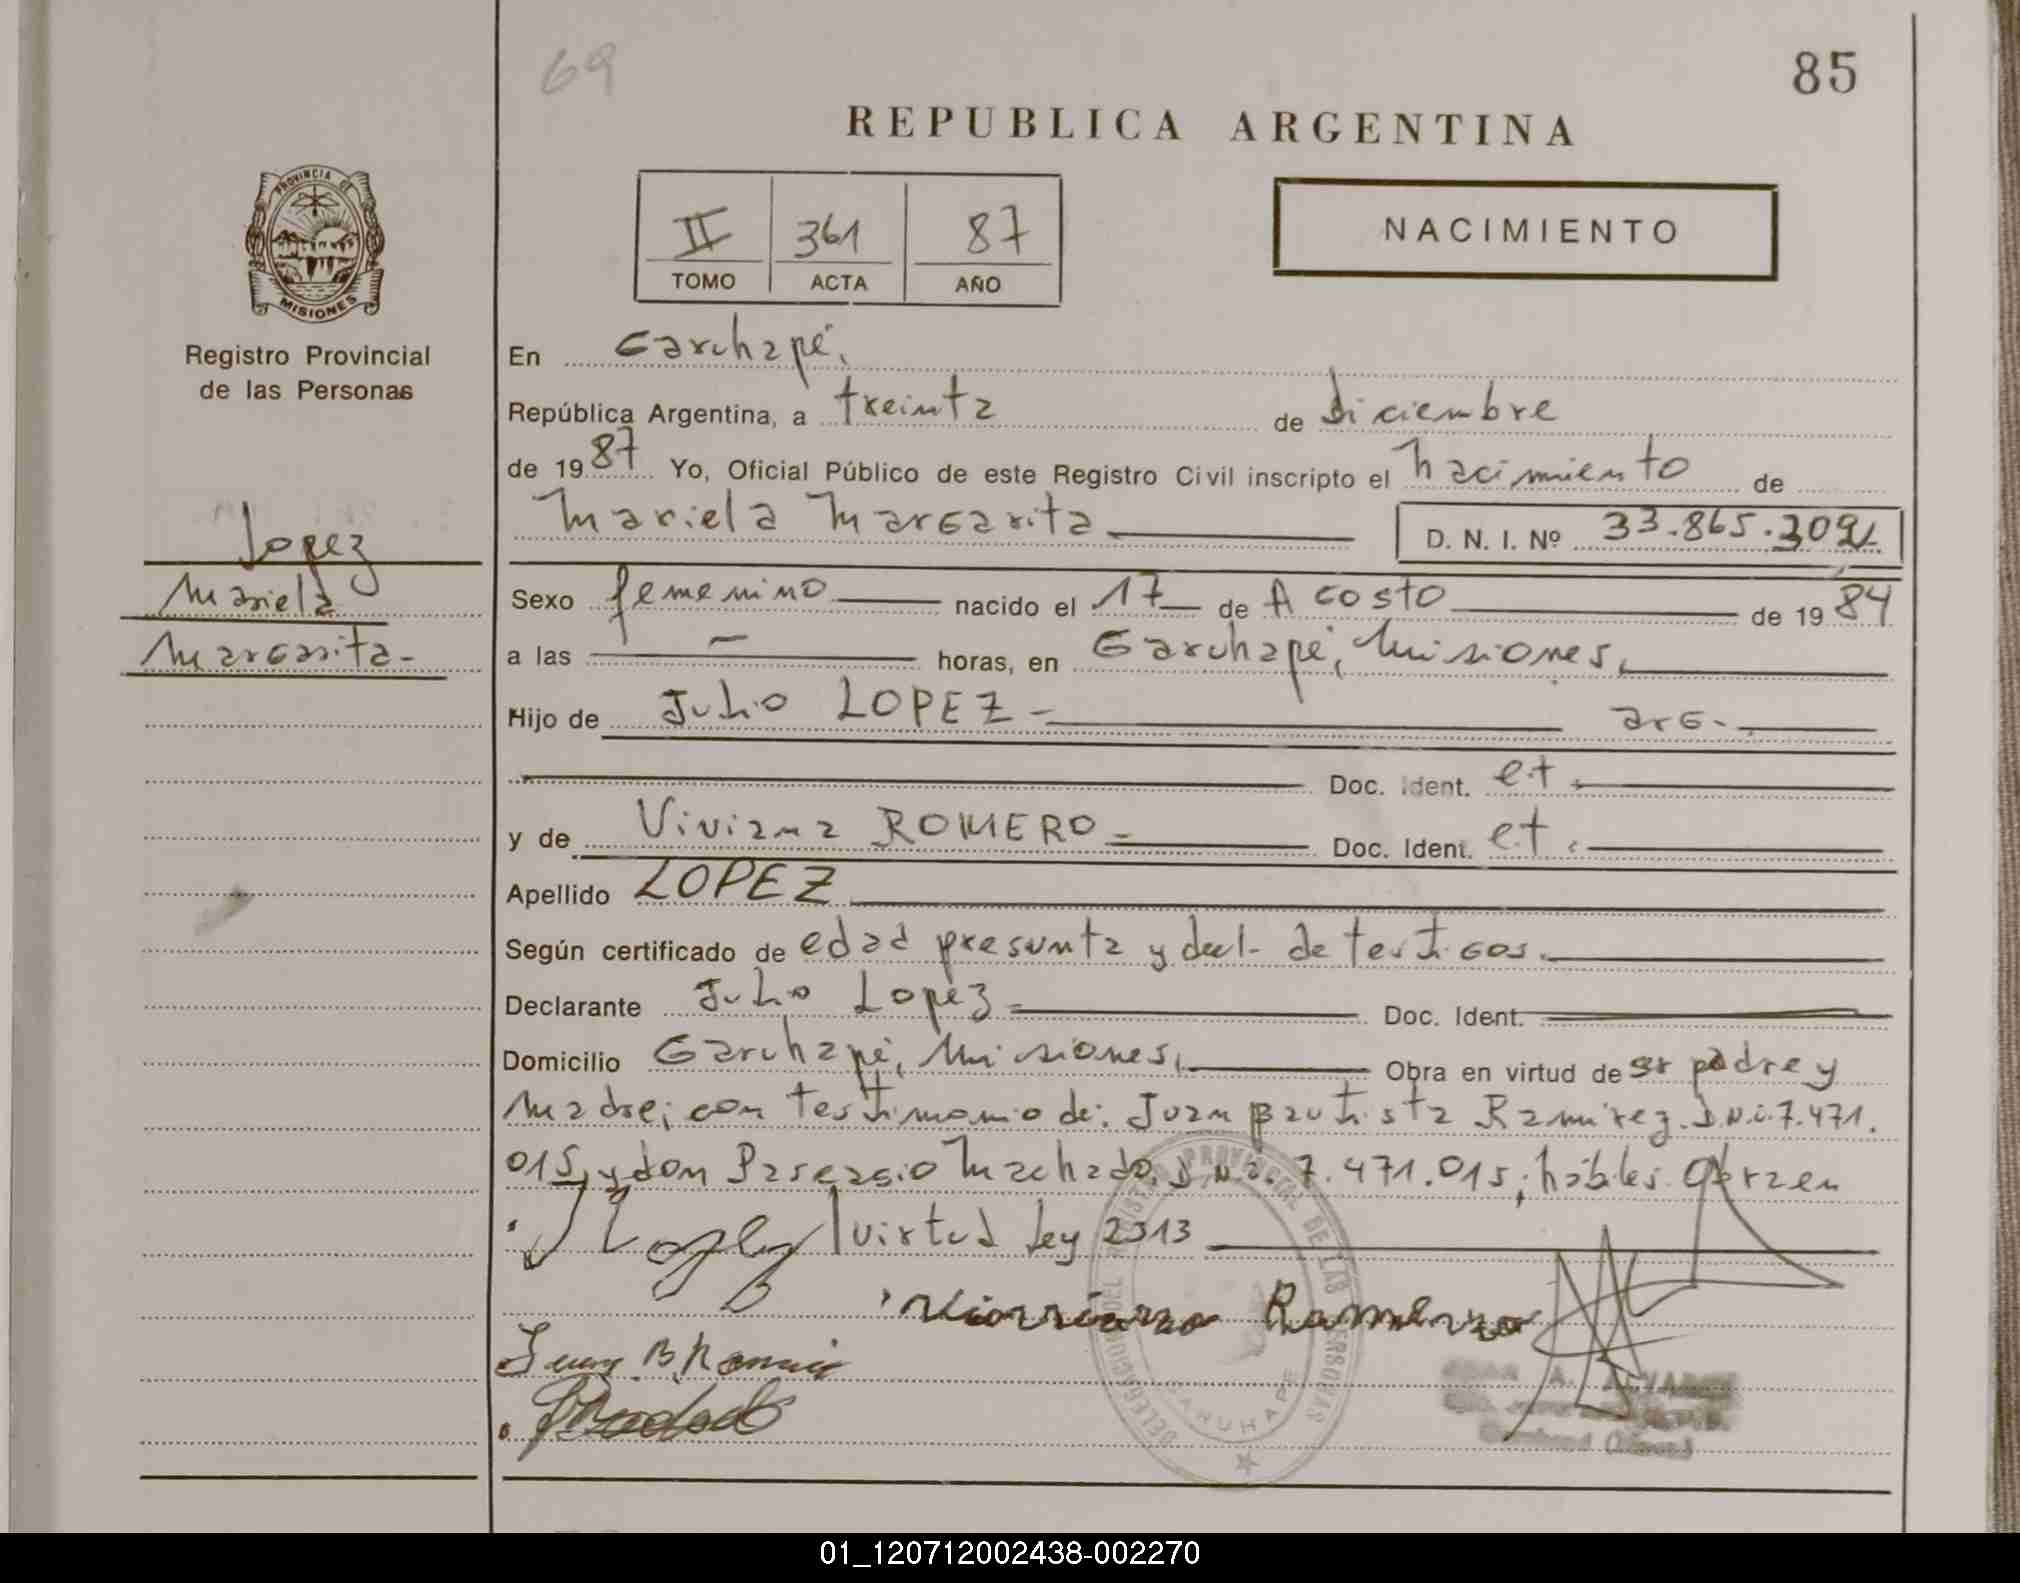 69
85
REPUBLICA ARGENTINA
II 361 87
TOMO ACTA AÑO
NACIMIENTO
PROVINCIA DE
MISIONES
Registro Provincial
de las Personas
Lopez
Mariela
Margarita-
En Garuhapé,
República Argentina, a treinta de diciembre
de 1987 Yo, Oficial Público de este Registro Civil inscripto el nacimiento de
Mariela Margarita
D. N. I. Nº 33.865.309
Sexo femenino nacido el 17 de Agosto de 1984
a las — horas, en Garuhapé, Misiones,
Hijo de Julio LOPEZ - arg.
Doc. Ident. et.
y de Viviana ROMERO - Doc. Ident. et.
Apellido LOPEZ
Según certificado de edad presunta y decl- de testigos.
Declarante Julio Lopez Doc. Ident.
Domicilio Garuhapé, Misiones, Obra en virtud de ser padre y
Madre; con testimonio de: Juan Bautista Ramirez. D.N.i. 7.471.
015, y don Pascasio Machado, D.N.i. 7.471.015; hábiles. Obra en
virtud Ley 2313
Juan B Ramirez
DELEGACION DEL REGISTRO PROVINCIAL DE LAS PERSONAS
GARUHAPE
A. ALVAREZ
01_120712002438-002270